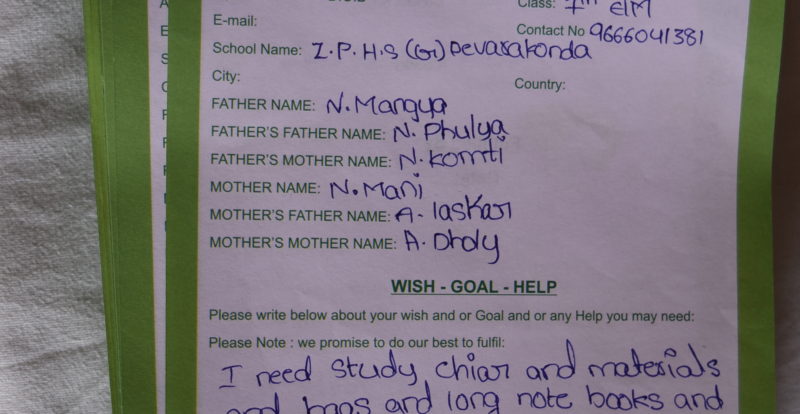 Class: 7th E/M
E-mail:
Contact No 9666041381
School Name: Z.P.H.S (G) Devarakonda
City:
Country:
FATHER NAME: N. Mangya
FATHER'S FATHER NAME: N. Phulya
FATHER'S MOTHER NAME: N. Komti
MOTHER NAME: N. Mani
MOTHER'S FATHER NAME: A. laskar
MOTHER'S MOTHER NAME: A. Dholy
WISH - GOAL - HELP
Please write below about your wish and or Goal and or any Help you may need:
Please Note : we promise to do our best to fulfil:
I need study chiar and materials
and bags and long note books and